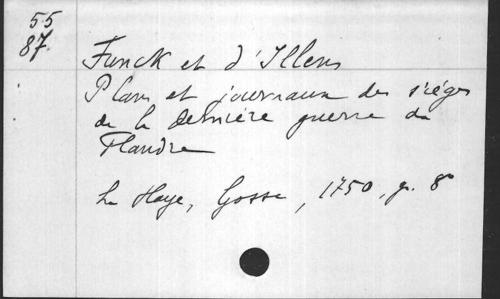 55
87.
Funck et d'Illens
Plans et journaux des sièges
de la dernière guerre de
Flandre
La Haye, Gosse, 1750, gr. 8°